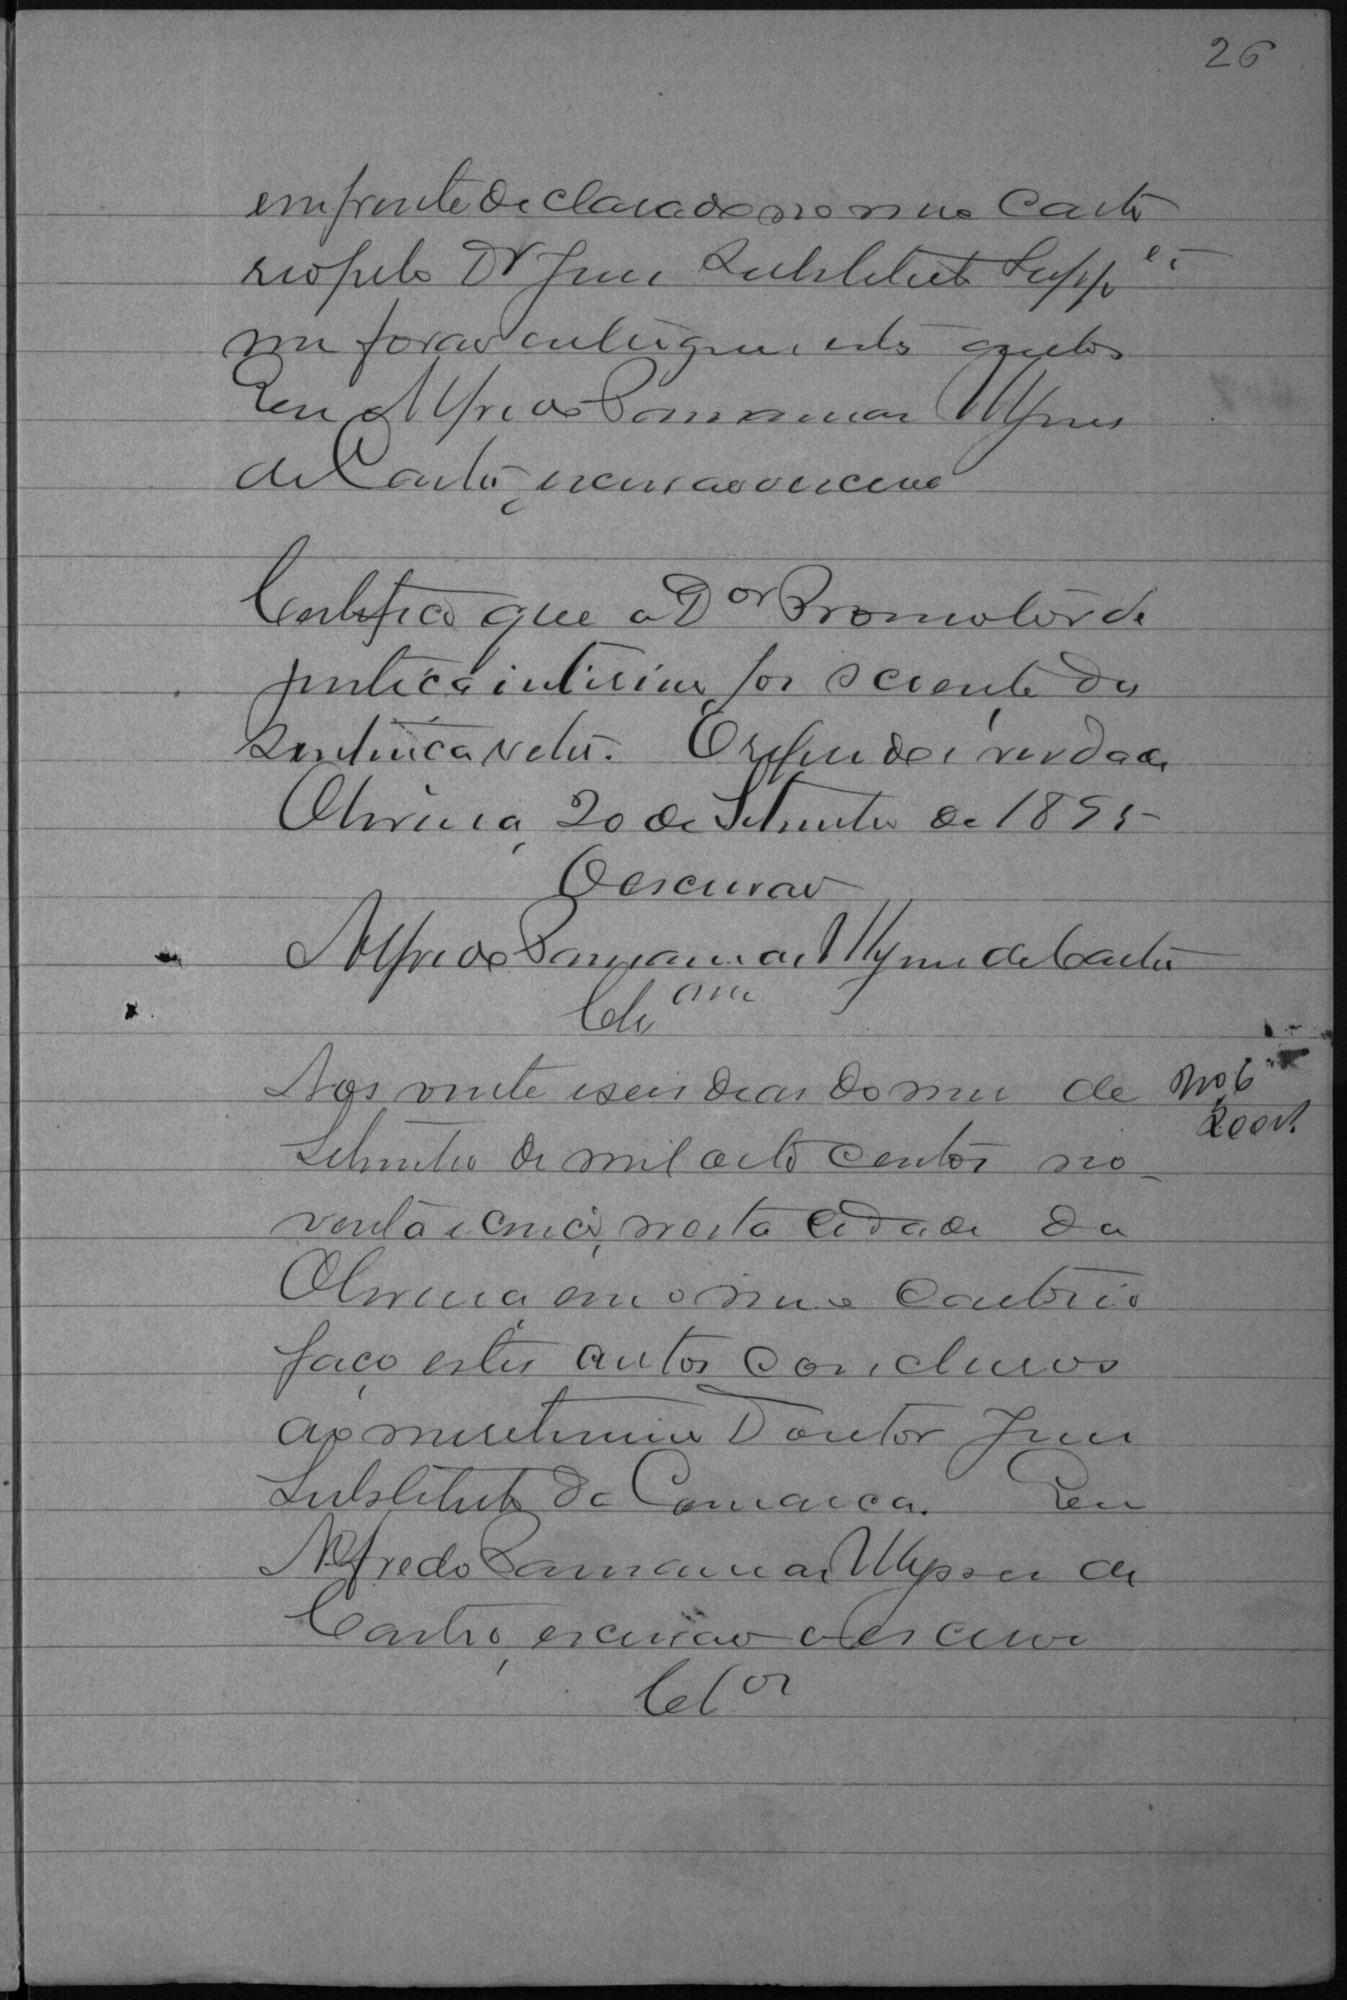 26
em frente declarado no meu carto
rio pelo Dr Juiz Substituto Supp e
me forão entregues estes autos
Eu Alfredo Ulysses
de Castro, escrivão o escrevi
Certifico que o Dor Promotor de
justiça interino foi sciente da
sentença retro. O referido é verdade
Oliveira, 20 de Setembro de 1895
O escrivão
Alfredo Ulysses de Castro
Clsam
Aos vinte e seis dias do mez de
Setembro de mil oito centos no-
venta e cinco, nesta cidade da
Oliveira, em o meu cartorio
faço estes autos conclusos
ao meretissimo Doutor Juiz
Substituto da Comarca. Eu
Alfredo Ulysses de
Castro, escrivão o escrevi
Clos